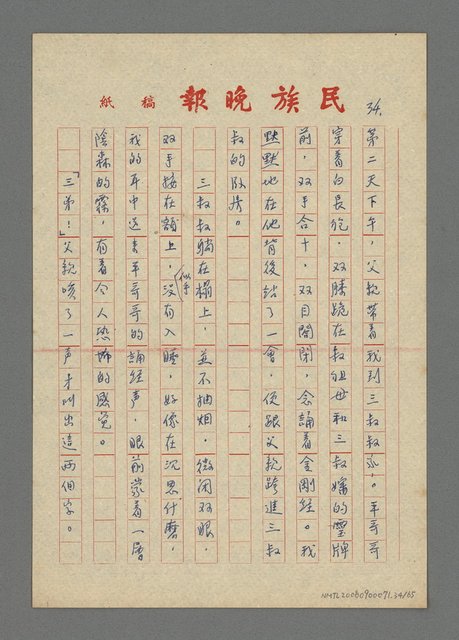 民族晚報 稿紙
34.
第二天下午，父親帶着我到三叔叔家。平哥哥
穿着白長袍，双膝跪在叔祖母和三叔嬸的靈牌
前，双手合十，双目閤閉，念誦着金剛經。我
默默地在他背後站了一會，便跟父親跨進三叔
叔的臥房。
三叔叔躺在榻上，並不抽烟，微闭双眼，
双手按在額上，似乎没有入睡，好像在沉思什麽，
我的耳中送來平哥哥的誦經声，眼前蒙着一層
陰森的霧，有着令人恐怖的感覚。
「三弟！」父親咳了一声才叫出這两個字。
NMTL20060900071.34/65